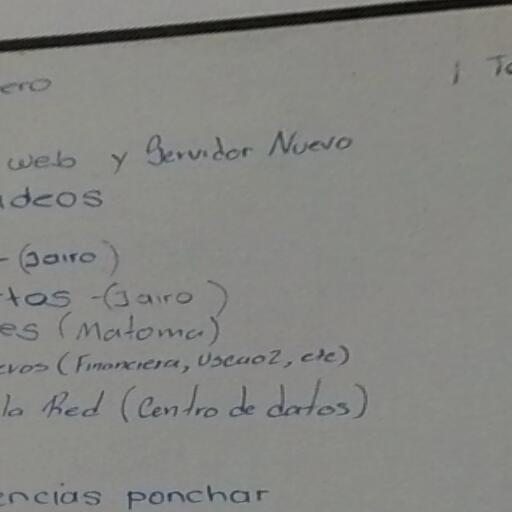 ero
¡ To
web y Servidor Nuevo
deos
- (Jairo)
tos - (Jairo)
es (Matoma)
evos (Financiera, Uscao2, etc)
la Red (Centro de datos)
encias ponchar